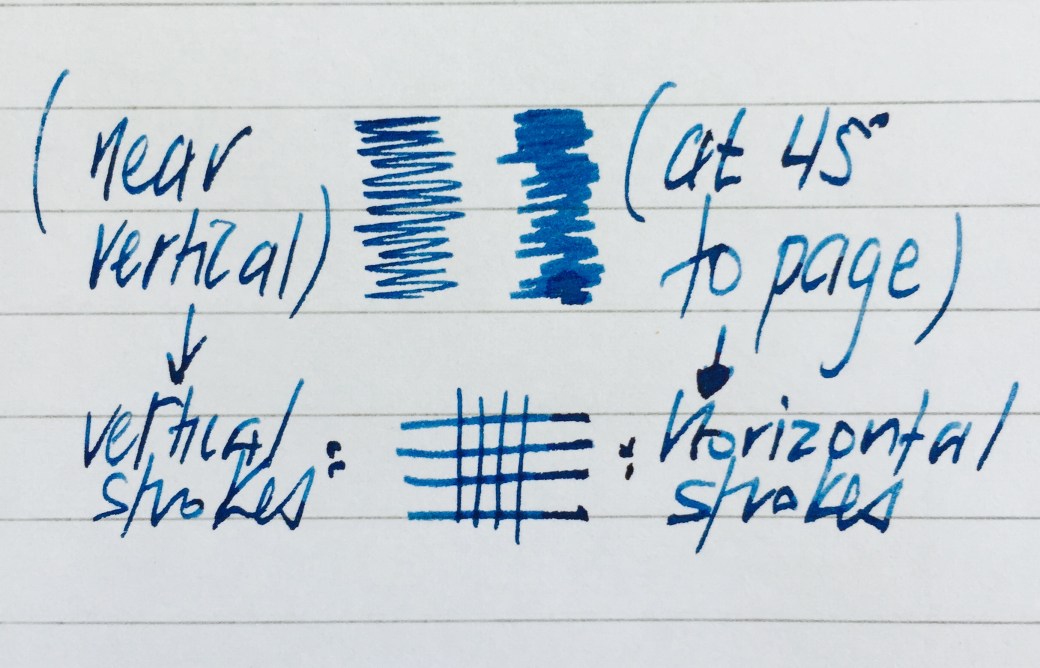 (near
vertical)
(at 45°
to page)
vertical
strokes :
: Horizontal
strokes